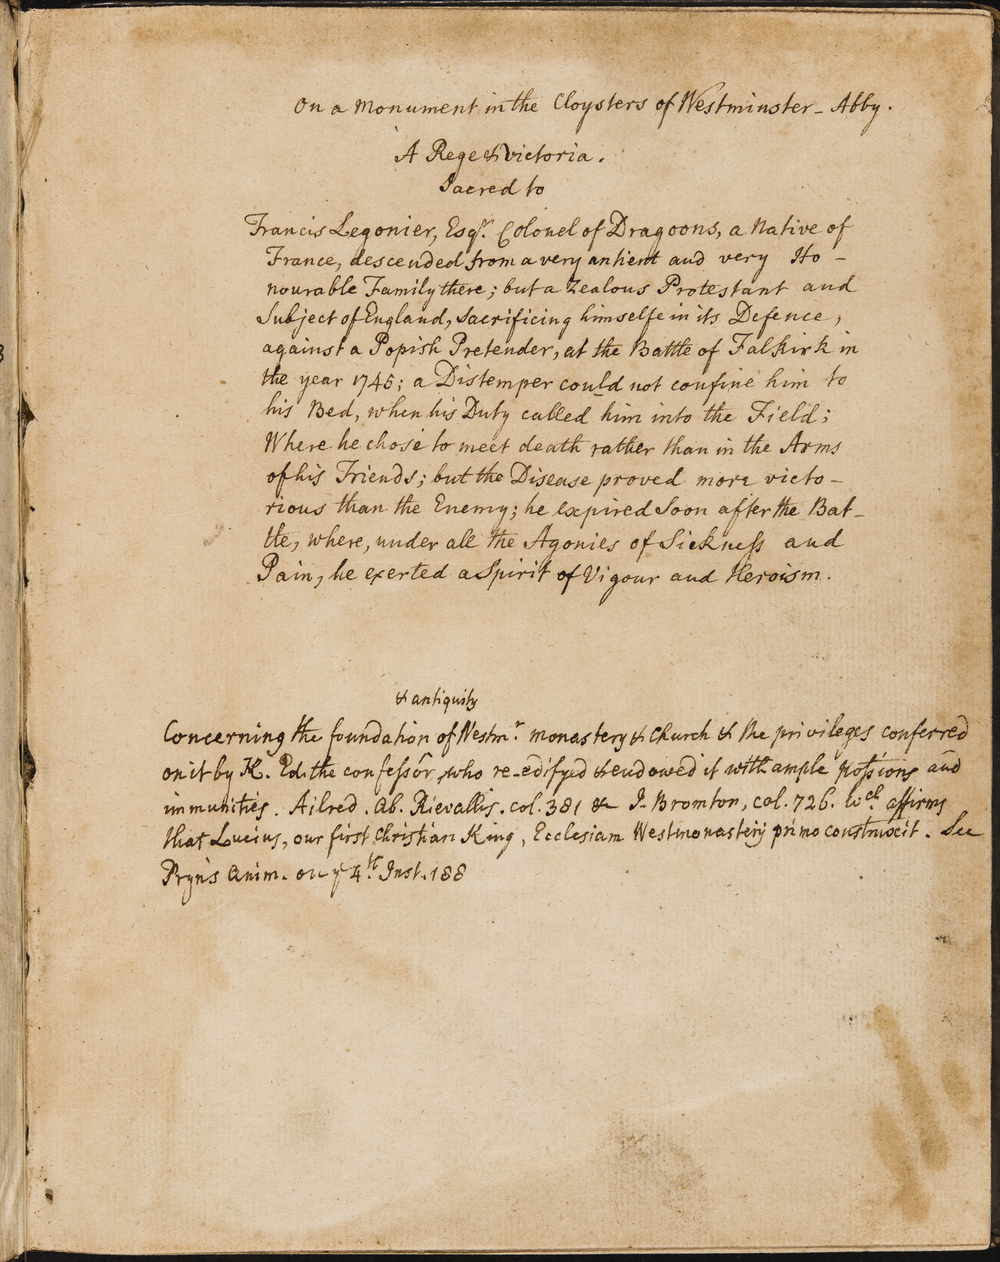 On a Monument in the Cloysters of Westminster-Abby.
A Rege & Victoria.
Sacred to
Francis Legonier, Esqr. Colonel of Dragoons, a Native of
France, descended from a very antient and very Ho-
nourable Family there; but a Zealous Protestant and
Subject of England, Sacrificing himselfe in its Defence,
against a Popish Pretender, at the Battle of Falkirk in
the year 1745; a Distemper could not confine him to
his Bed, when his Duty called him into the Field;
Where he chose to meet death rather than in the Arms
of his Friends; but the Disease proved more victo-
rious than the Enemy; he expired Soon after the Bat-
tle, where, under all the Agonies of Sickness and
Pain, he exerted a Spirit of Vigour and Heroism.
& antiquity
Concerning the foundation of Westmr. monastery & Church & the privileges conferred
on it by K. Ed. the confessor, who re-edifyed & endowed it with ample possions and
immunities. Ailred. Ab. Rievallis. col. 381 & J. Bromton, col. 726. wch affirms
that Lucius, our first Christian King, Ecclesiam Westmonasterij primo construxit. See
Pryn's Anim. on ye 4th Inst. 188